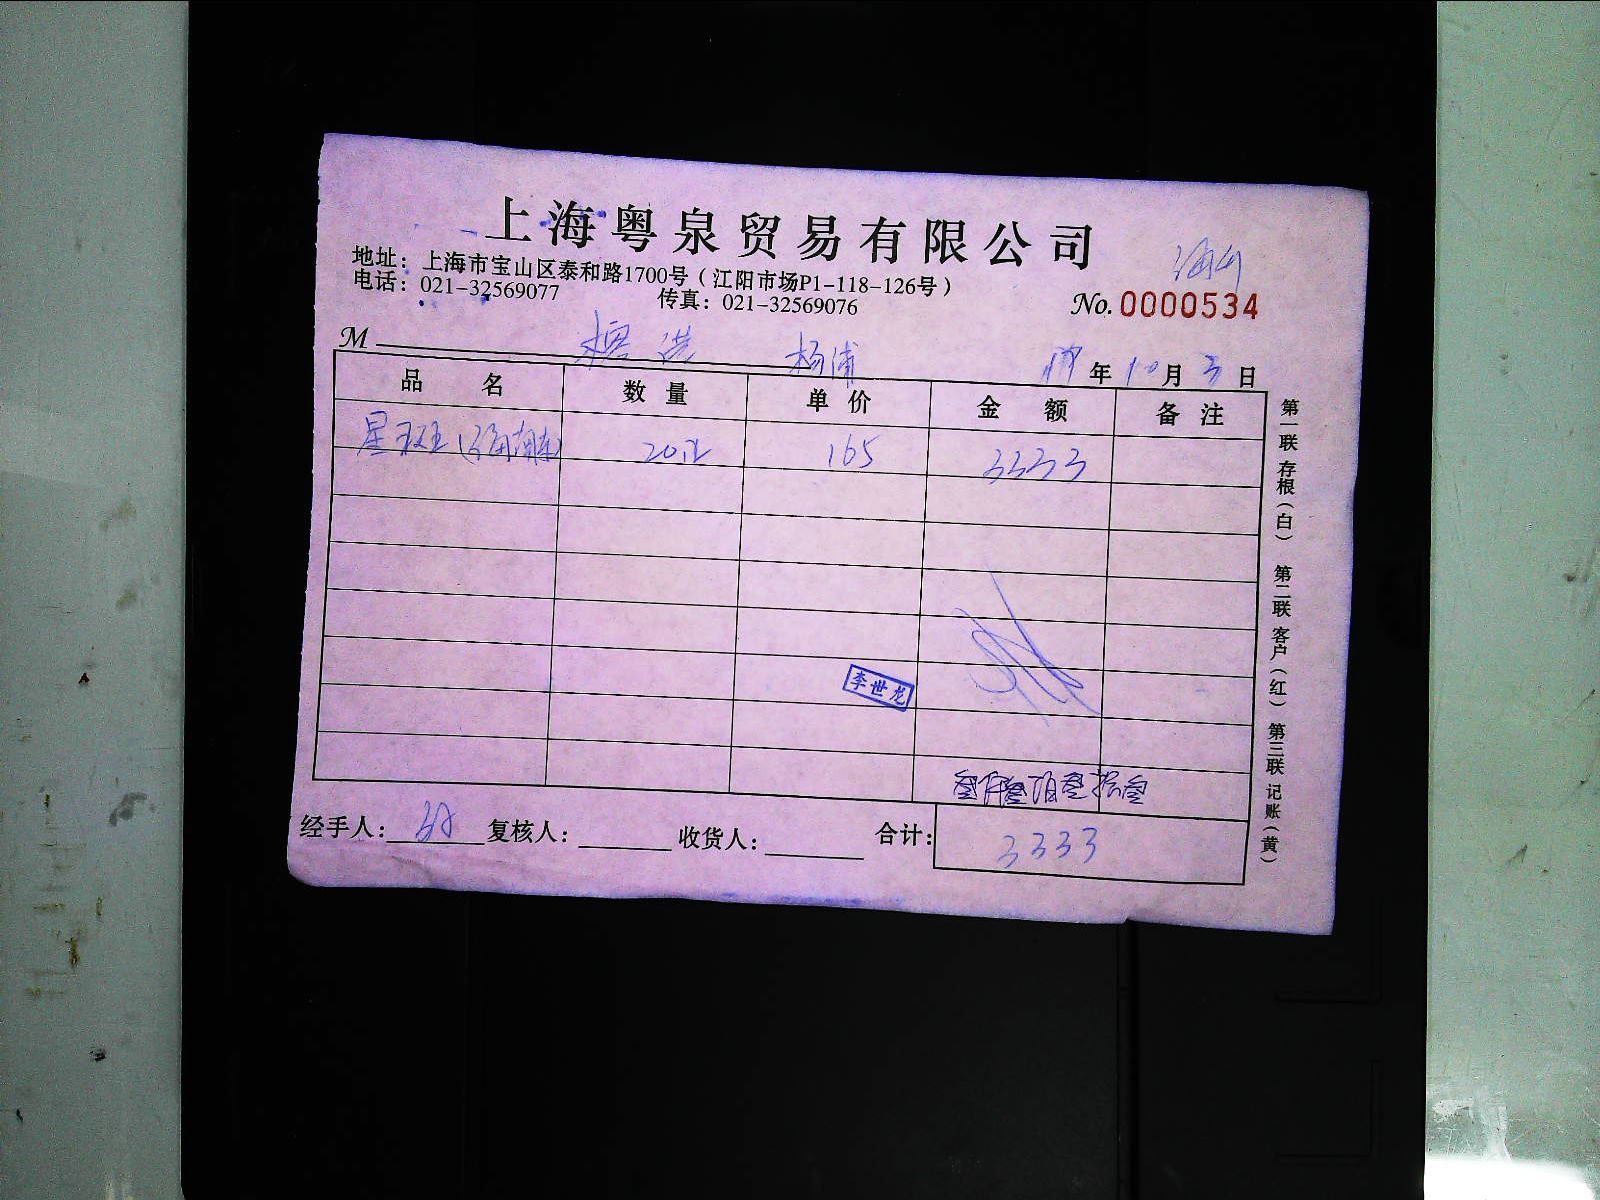 上海粤泉贸易有限公司
地址：上海市宝山区泰和路1700号（江阳市场P1-118-126号）
电话：021-32569077 传真：021-32569076
No. 0000534
M 杨浦
年 10 月 3 日
品 名 数 量 单 价 金 额 备 注
星斑（海南 165 3333
李世龙
叁仟叁佰叁拾叁
经手人： 复核人： 收货人： 合计： 3333
第一联 存根（白） 第二联 客户（红） 第三联 记账（黄）